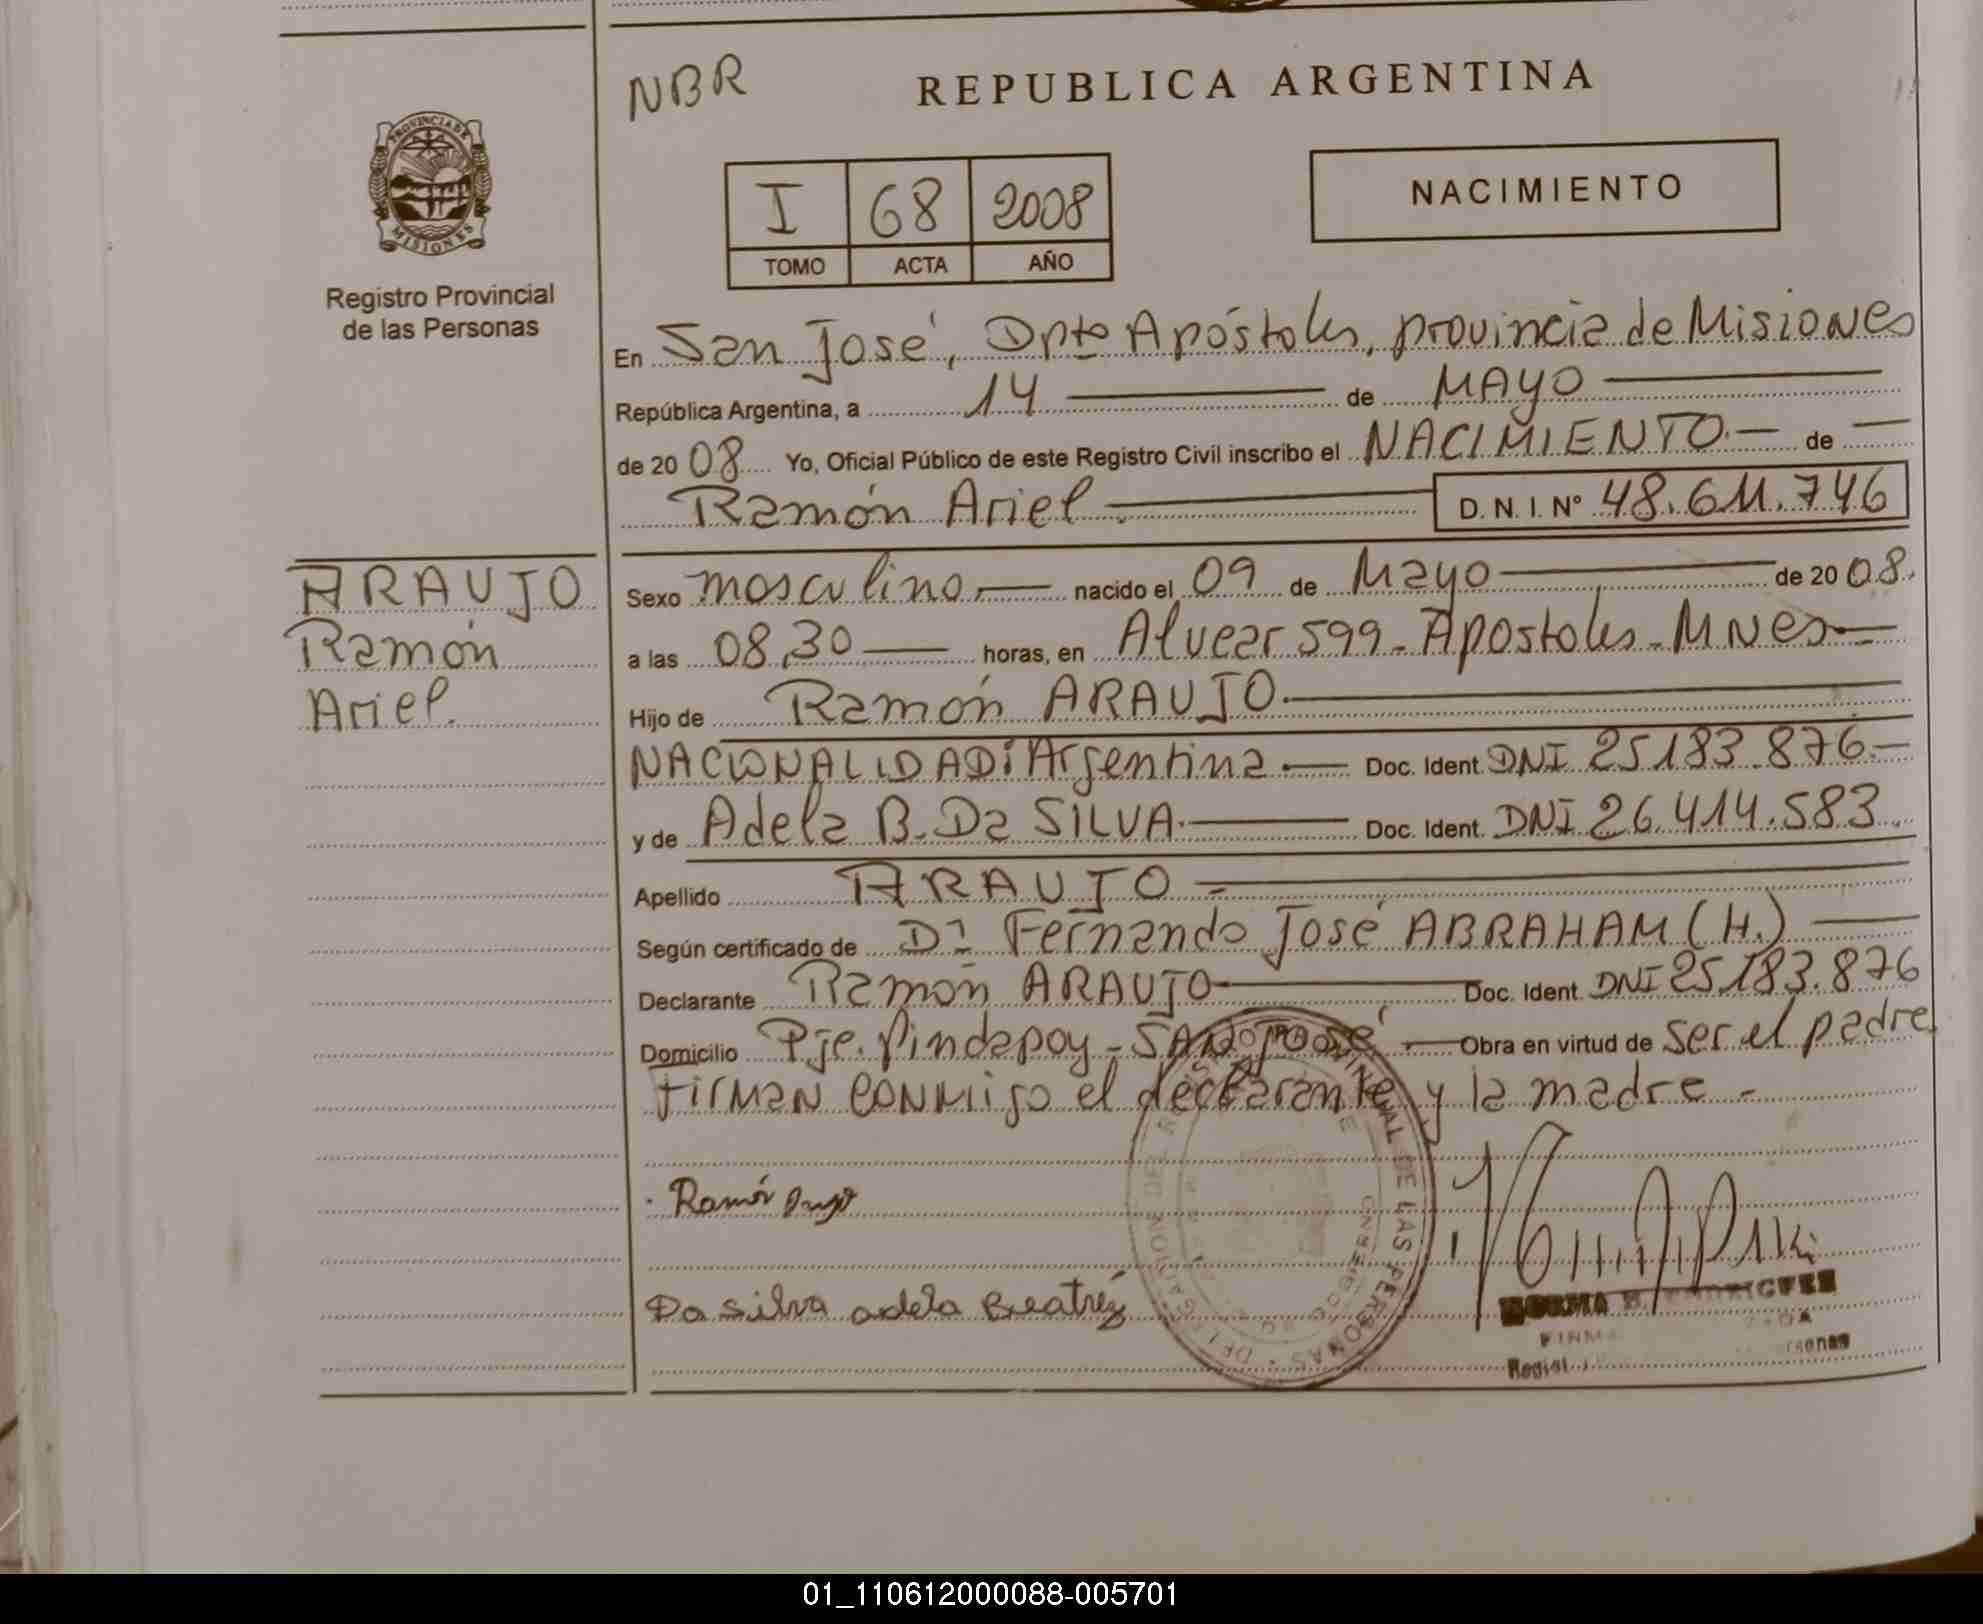 NBR
REPUBLICA ARGENTINA
PROVINCIA DE
MISIONES
Registro Provincial
de las Personas
I 68 2008
TOMO ACTA AÑO
NACIMIENTO
En San José, Dpto Apóstoles, provincia de Misiones
República Argentina, a 14 de MAYO
de 2008 Yo, Oficial Público de este Registro Civil inscribo el NACIMIENTO.— de —
Ramón Ariel D. N. I. Nº 48.611.746
ARAUJO
Ramón
Ariel.
Sexo masculino.— nacido el 09 de Mayo de 2008.
a las 08,30 horas, en Alvear 599-Apostoles-MNes—
Hijo de Ramón ARAUJO.
NACIONALIDAD: Argentina.— Doc. Ident. DNI 25.183.876.—
y de Adela B. Da SILVA. Doc. Ident. DNI 26.414.583.
Apellido ARAUJO
Según certificado de Dr Fernando José ABRAHAM (H.)
Declarante Ramón ARAUJO Doc. Ident. DNI 25.183.876
Domicilio Pje. Pindapoy - SAN José Obra en virtud de ser el padre
Firman conmigo el declarante y la madre -
Ramón
Da Silva adela Beatriz
NORMA B.
FIRMA
01_110612000088-005701